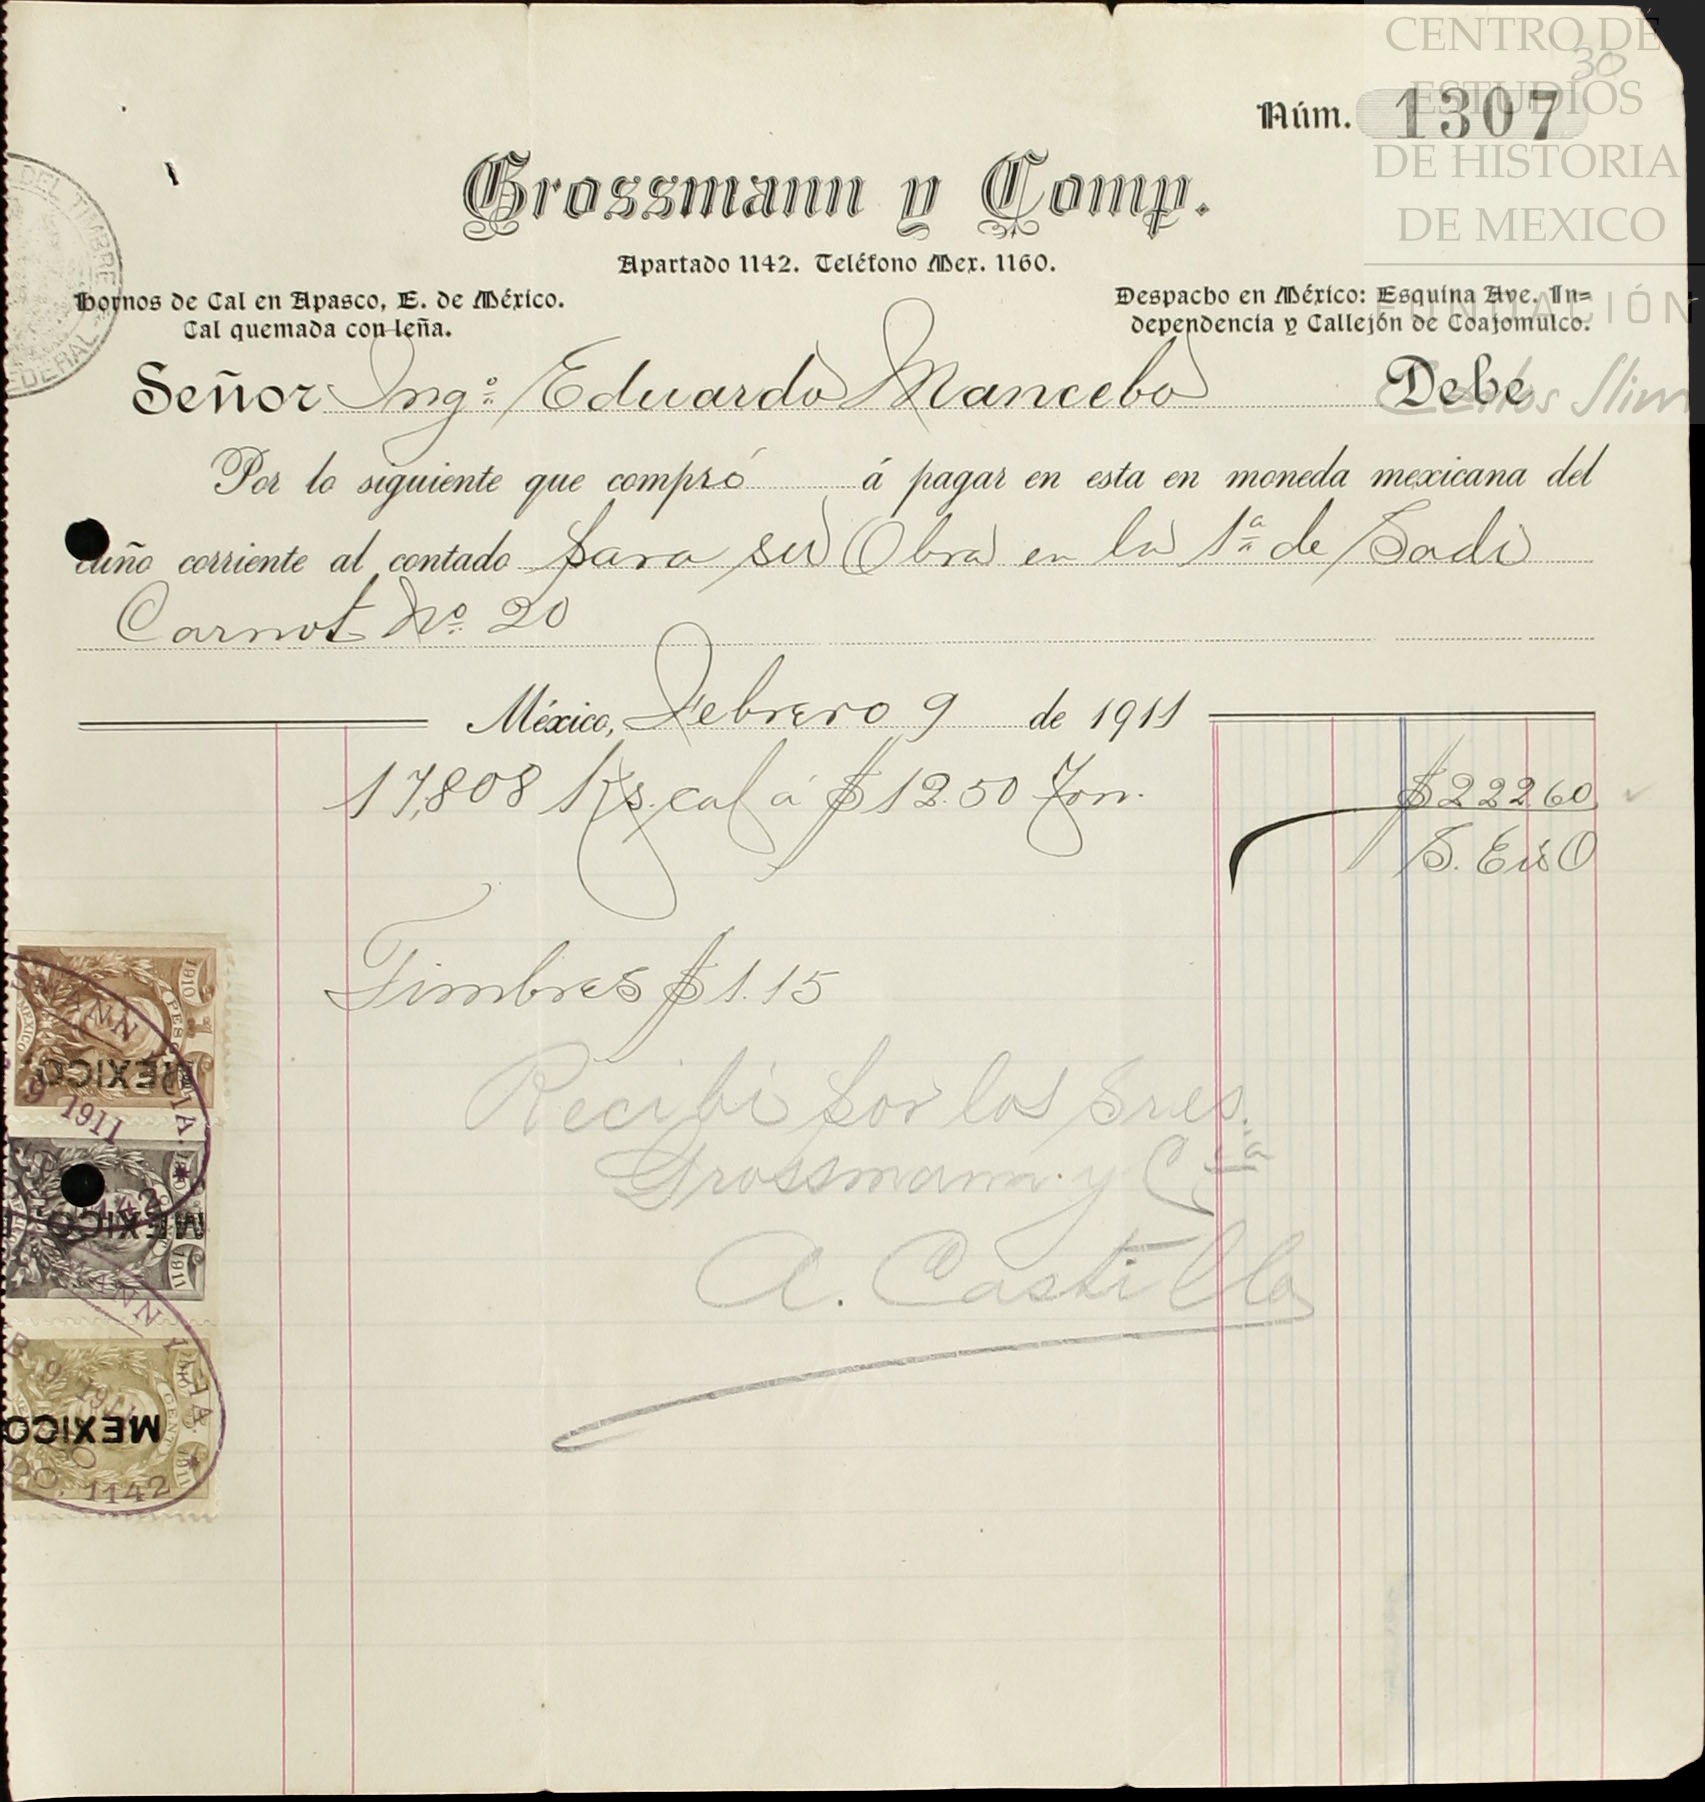 CENTRO DE
ESTUDIOS
DE HISTORIA
DE MEXICO
FUNDACIÓN
Carlos Slim
30
Núm. 1307
Grossmann y Comp.
Apartado 1142. Teléfono Mex. 1160.
Hornos de Cal en Apasco, E. de México.
Cal quemada con leña.
Despacho en México: Esquina Ave. In=
dependencia y Callejón de Coajomulco.
Señor Ingo. Eduardo Mancebo Debe
Por lo siguiente que compró á pagar en esta en moneda mexicana del
cuño corriente al contado para su Obra en la 1a. de Sadi
Carnot No. 20
México, Febrero 9 de 1911
17,808 Ks. cal á $12.50 Ton. $222 60
S. E. ú O
Timbres $1.15
Recibí por los Sres.
Grossmann y Cía
A. Castillo
DEL TIMBRE
FEDERAL
1910
MEXICO
9 1911
MEXICO
1911
B. 9 1911
MEXICO
1911
DO. 1142